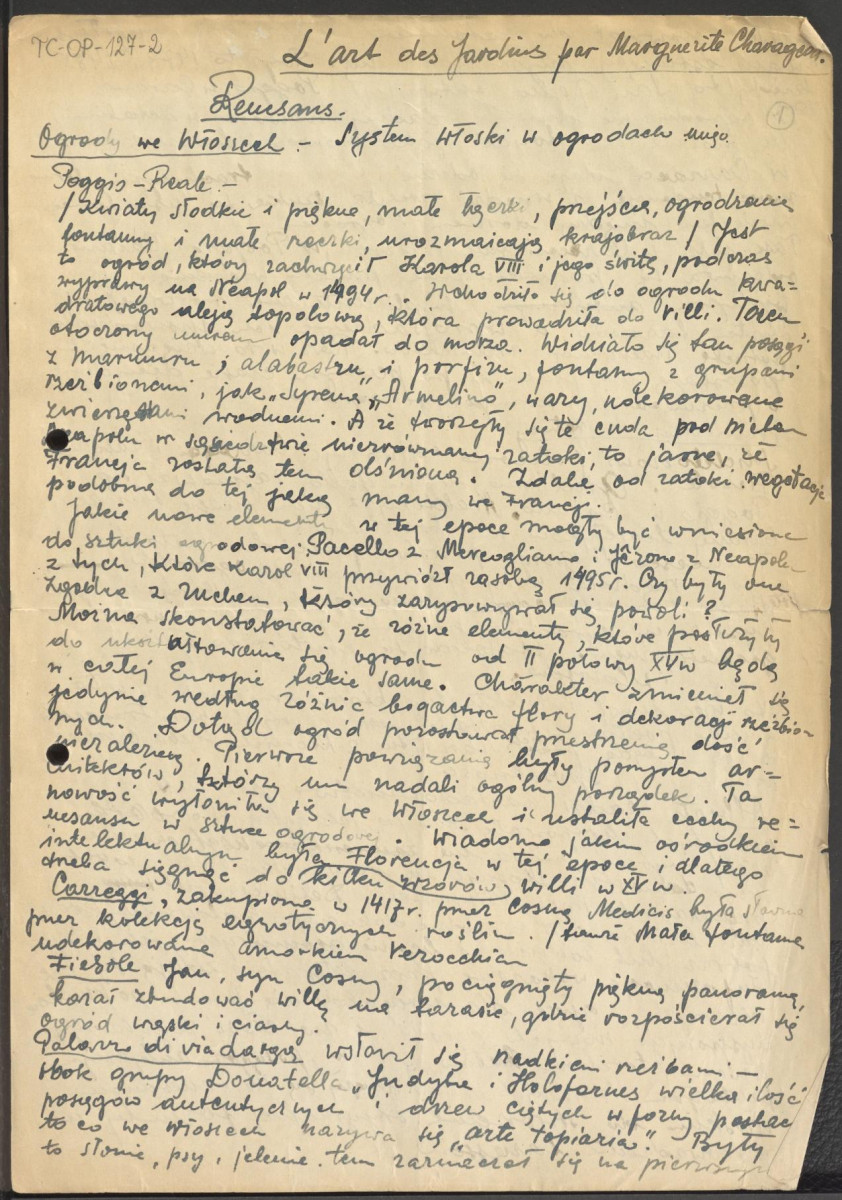 TC-OP-127-2
L'art des Jardins par Marguerite Charageat.
1
Renesans.
Ogrody we Włoszech - System włoski w ogrodach
Poggio-Reale.-
/Kwiaty słodkie i piękne, małe łączki, przejścia, ogrodzenia
fontanny i małe rzeczki, urozmaicają krajobraz / Jest
to ogród, który zachwycił Karola VIII i jego świtę, podczas
wyprawy na Neapol w 1494r.. Wchodziło się do ogrodu kwa-
dratowego aleją topolową, która prowadziła do villi. Teren
otoczony murem opadał do morza. Widziało się tam posągi
z marmuru, alabastru i porfiru, fontanny z grupami
rzeźbionemi, jak „Syrena", „Armelino", wazy, udekorowane
zwierzętami wodnemi. A że tworzyły się te cuda pod niebem
Neapolu w sąsiedztwie niezrównanej zatoki, to jasne, że
Francja została tem olśniona. Zdala od zatoki wegetacja
podobna do tej jaką mamy we Francji.
Jakie nowe elementy w tej epoce mogły być wniesione
do sztuki ogrodowej Pacello z Mercogliano i Jérome z Neapolu
z tych, które Karol VIII przywiózł za sobą 1495r. Czy były one
zgodne z ruchem, który zarysowywał się powoli?
Można skonstatować, że różne elementy, które posłużyły
do ukształtowania się ogrodu od II połowy XVw będą
w całej Europie takie same. Charakter zmieniał się
jedynie według różnic bogactwa flory i dekoracji rzeźbio-
nych. Dotąd ogród pozostawał przestrzenią dość
niezależną. Pierwsze powiązania były pomysłem ar-
chitektów, którzy mu nadali ogólny porządek. Ta
nowość wyłoniła się we Włoszech i ustaliła cechy re-
nesansu w sztuce ogrodowej. Wiadomo jakim ośrodkiem
intelektualnym była Florencja w tej epoce i dlatego
trzeba sięgnąć do kilku wzorów willi w XVw.
Carreggi, zakupiona w 1417r. przez Cosmę Medicis była sławna
przez kolekcję egzotycznych roślin. / tamże Mała fontanna
udekorowana amorkiem Verocchia
Fiesole Jan, syn Cosmy, pociągnięty piękną panoramą,
kazał zbudować willę na tarasie, gdzie rozpościerał się
ogród wąski i ciasny.
Palazzo di via Larga wsławił się rzadkiemi rzeźbami -
obok grupy Donatella „Judyta i Holofernes wielka ilość
posągów autentycznych i drzew ciętych w formy postaci
to co we Włoszech nazywa się „arte topiaria". Były
to słonie, psy, jelenie. tem zaznaczał się na pierwszym